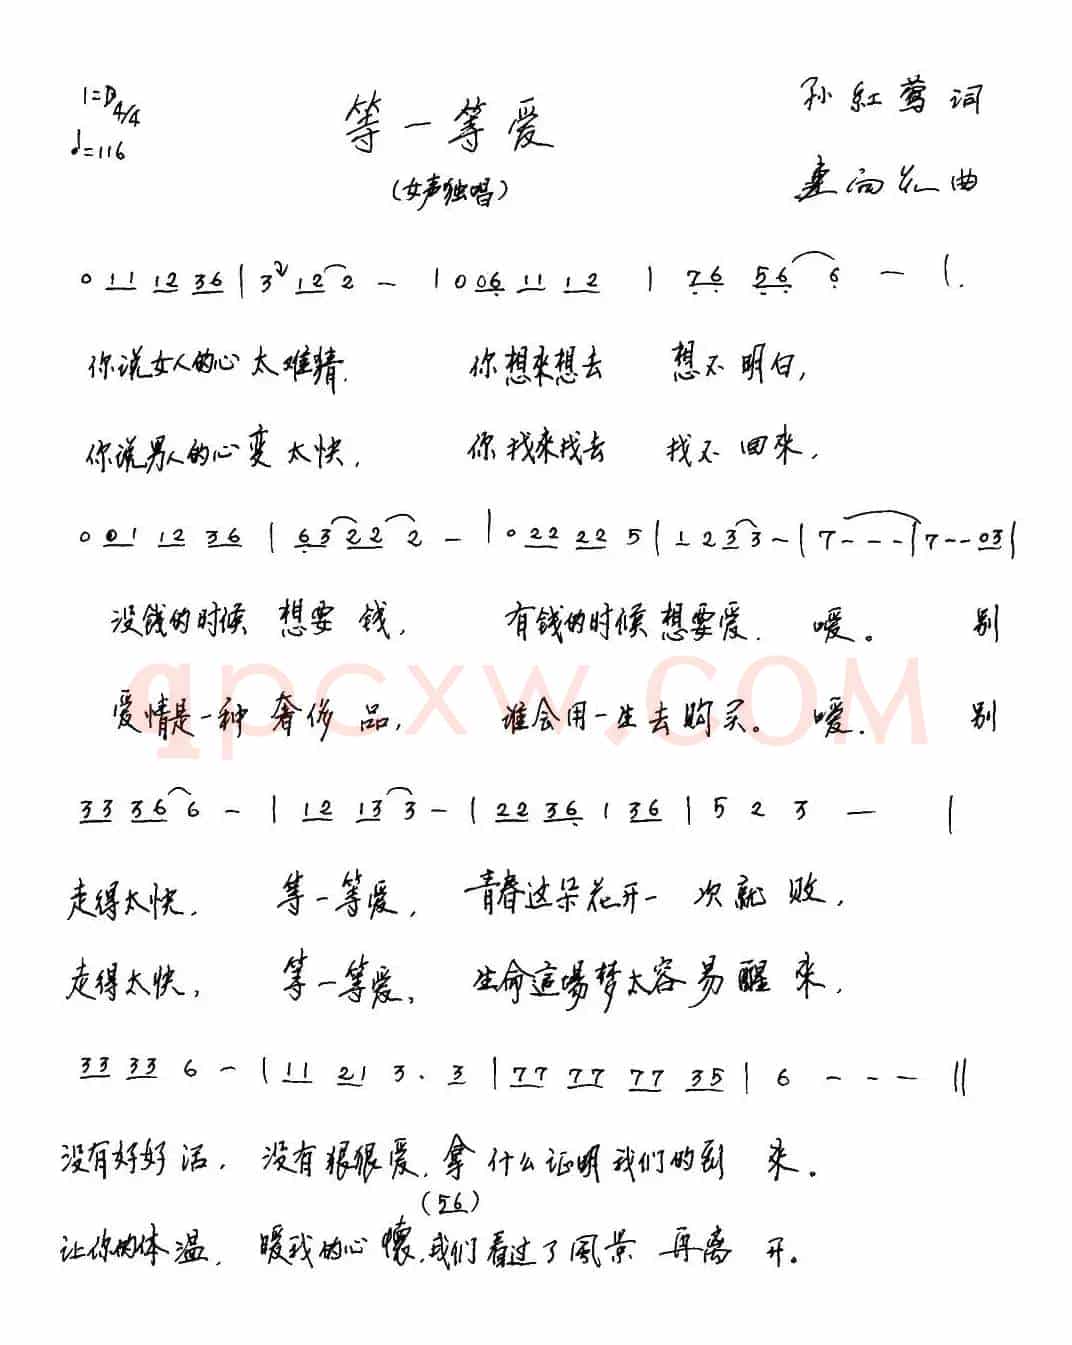 1=D 4/4
♩=116
等一等爱
(女声独唱)
孙紅莺词
向 曲
0 11 12 36 | 3 2 12 2 - | 0 06 11 12 | 76 56 6 - |
你说女人的心太难猜. 你想來想去 想不明白,
你说男人的心变太快, 你找来找去 找不回來,
0 01 12 36 | 63 22 2 - | 0 22 22 5 | 1 2 33 - | 7 - - - | 7 - - 03 |
没钱的时候 想要钱, 有钱的时候想要爱. 嗳。 别
qpcxw.COM
爱情是一种奢侈品, 谁会用一生去购买。嗳. 别
33 36 6 - | 12 13 3 - | 22 36 1 36 | 5 2 3 — |
走得太快, 等一等爱, 青春这朵花开一次就败,
走得太快, 等一等爱, 生命這場梦太容易醒来,
33 33 6 - | 11 21 3 . 3 | 77 77 77 35 | 6 - - - ||
没有好好活, 没有狠狠爱, 拿什么证明我们的到来。
(56)
让你的体温, 暖我的心懷, 我们看过了風景再离开。